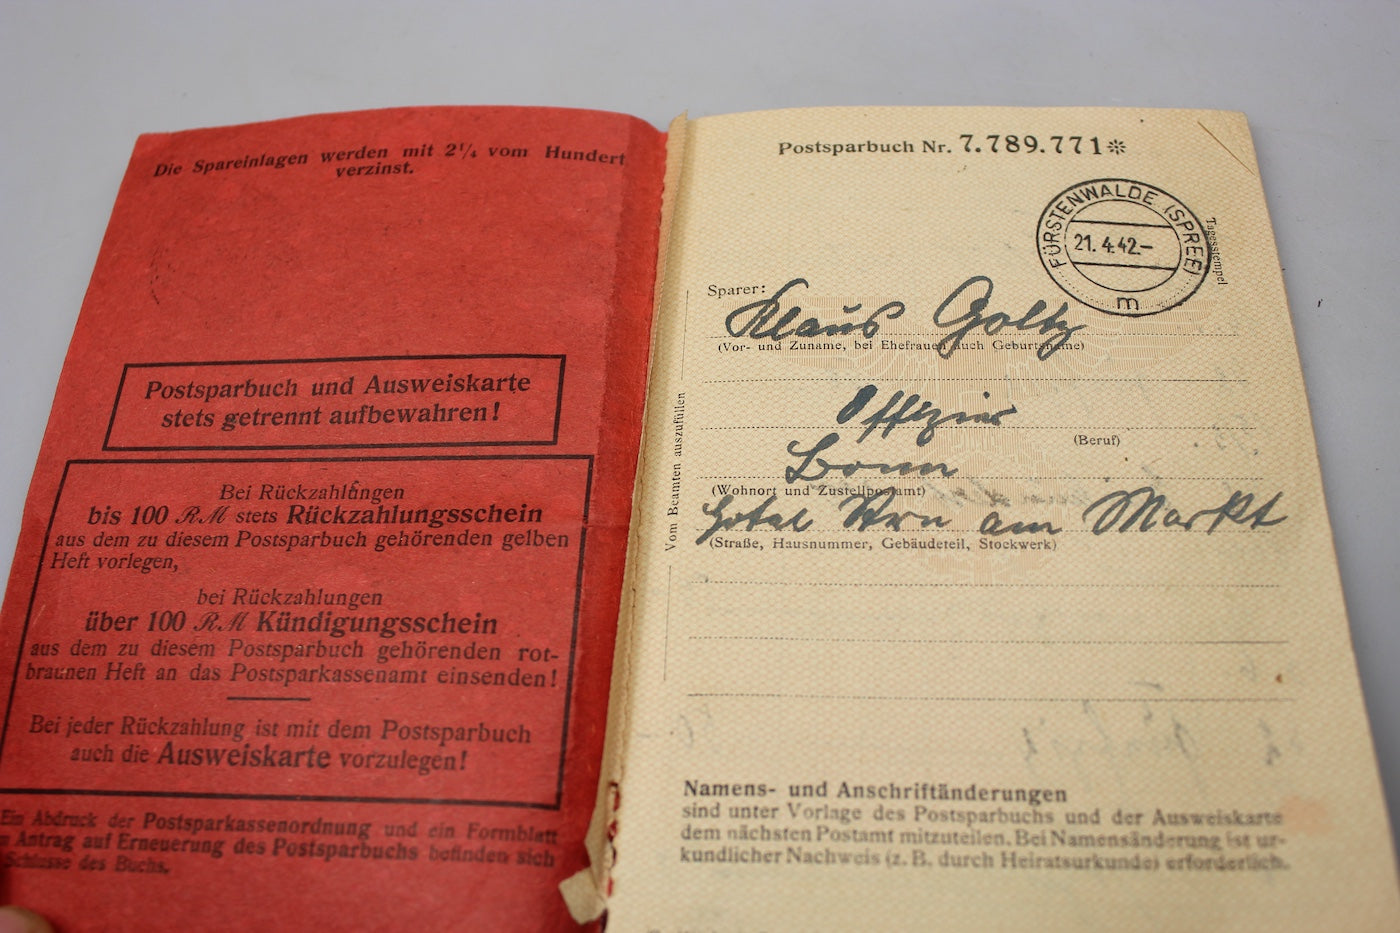 Die Spareinlagen werden mit 2¼ vom Hundert
verzinst.
Postsparbuch und Ausweiskarte
stets getrennt aufbewahren!
Bei Rückzahlungen
bis 100 RM stets Rückzahlungsschein
aus dem zu diesem Postsparbuch gehörenden gelben
Heft vorlegen,
bei Rückzahlungen
über 100 RM Kündigungsschein
aus dem zu diesem Postsparbuch gehörenden rot-
braunen Heft an das Postsparkassenamt einsenden!
Bei jeder Rückzahlung ist mit dem Postsparbuch
auch die Ausweiskarte vorzulegen!
Ein Abdruck der Postsparkassenordnung und ein Formblatt
Antrag auf Erneuerung des Postsparbuchs befinden sich
Schlusse des Buchs.
Postsparbuch Nr. 7.789.771*
FÜRSTENWALDE (SPREE)
21.4.42.–
m
Tagesstempel
Vom Beamten auszufüllen
Sparer:
Klaus Goltz
(Vor- und Zuname, bei Ehefrauen auch Geburtsname)
Offizier
(Beruf)
Bonn
(Wohnort und Zustellpostamt)
Hotel Stern am Markt
(Straße, Hausnummer, Gebäudeteil, Stockwerk)
Namens- und Anschriftänderungen
sind unter Vorlage des Postsparbuchs und der Ausweiskarte
dem nächsten Postamt mitzuteilen. Bei Namensänderung ist ur-
kundlicher Nachweis (z. B. durch Heiratsurkunde) erforderlich.